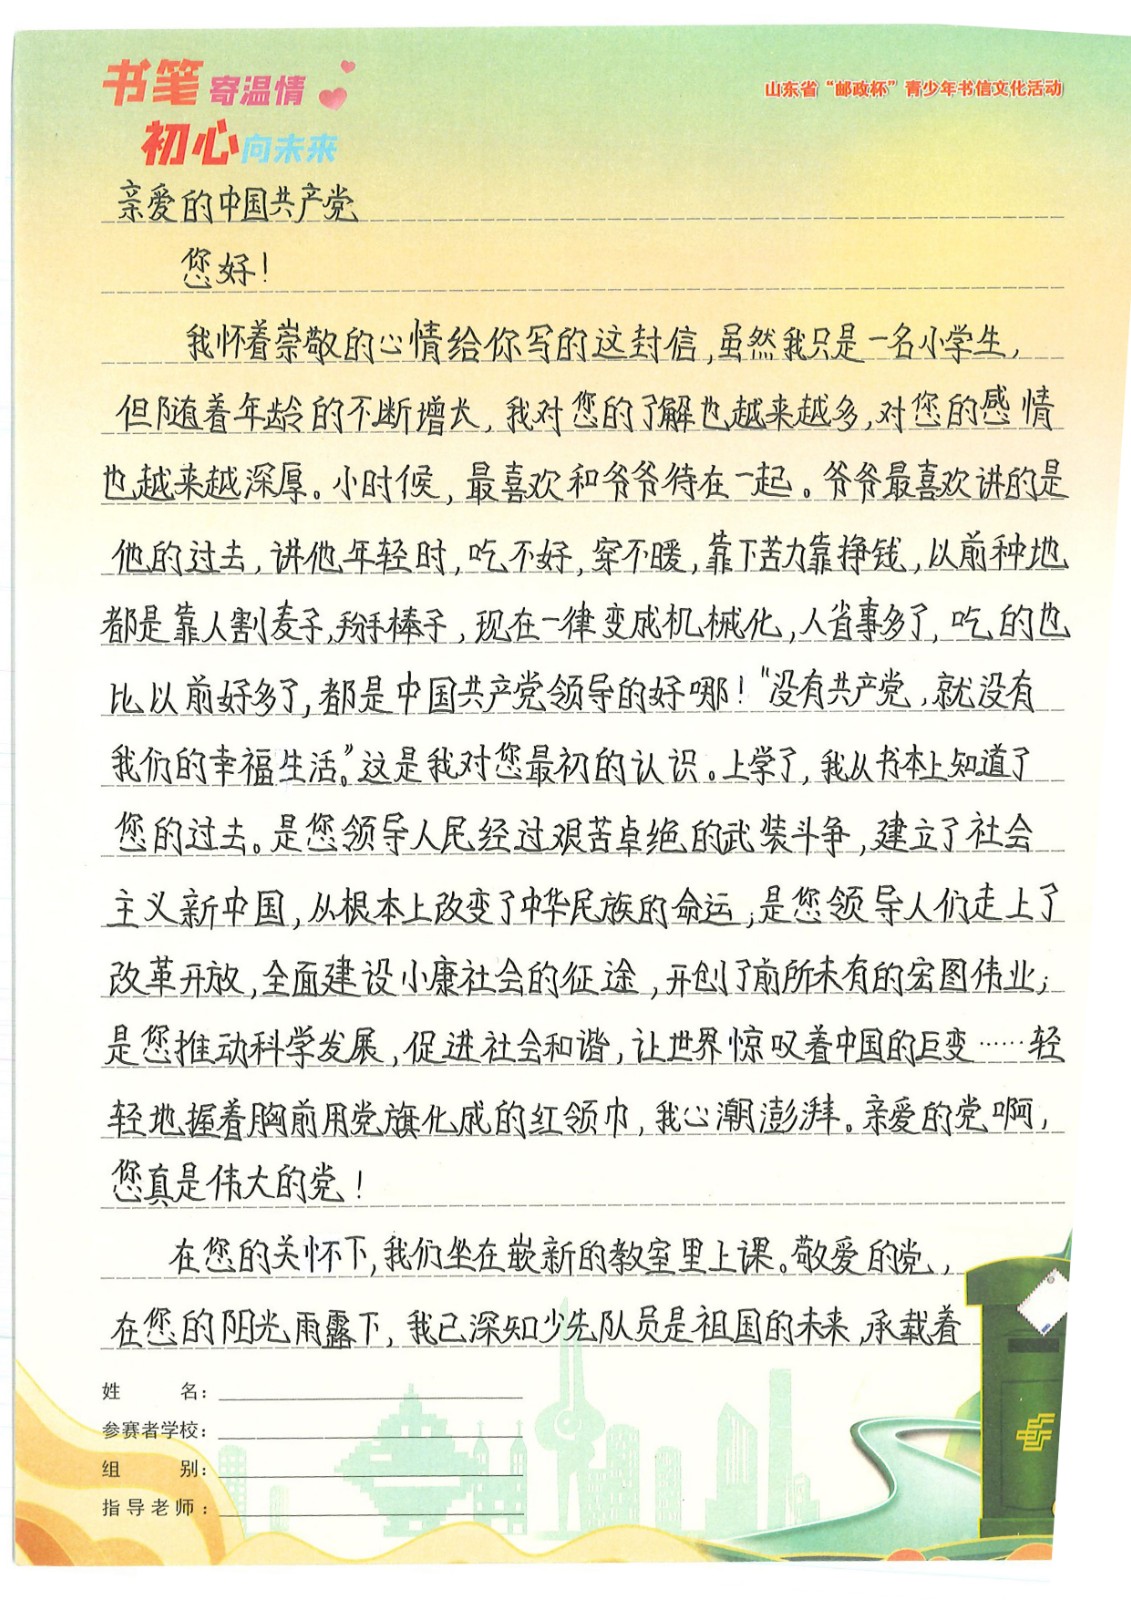 书笔寄温情
初心向未来
山东省“邮政杯”青少年书信文化活动
亲爱的中国共产党
您好！
我怀着崇敬的心情给你写的这封信，虽然我只是一名小学生，
但随着年龄的不断增长，我对您的了解也越来越多，对您的感情
也越来越深厚。小时候，最喜欢和爷爷待在一起。爷爷最喜欢讲的是
他的过去，讲他年轻时，吃不好，穿不暖，靠下苦力靠挣钱，以前种地
都是靠人割麦子，掰手棒子，现在一律变成机械化，人省事多了，吃的也
比以前好多了，都是中国共产党领导的好哪！“没有共产党，就没有
我们的幸福生活”。这是我对您最初的认识。上学了，我从书本上知道了
您的过去。是您领导人民经过艰苦卓绝的武装斗争，建立了社会
主义新中国，从根本上改变了中华民族的命运；是您领导人们走上了
改革开放，全面建设小康社会的征途，开创了前所未有的宏图伟业；
是您推动科学发展，促进社会和谐，让世界惊叹着中国的巨变……轻
轻地握着胸前用党旗化成的红领巾，我心潮澎湃。亲爱的党啊，
您真是伟大的党！
在您的关怀下，我们坐在崭新的教室里上课。敬爱的党，
在您的阳光雨露下，我已深知少先队员是祖国的未来，承载着
姓名：
参赛者学校：
组别：
指导老师：